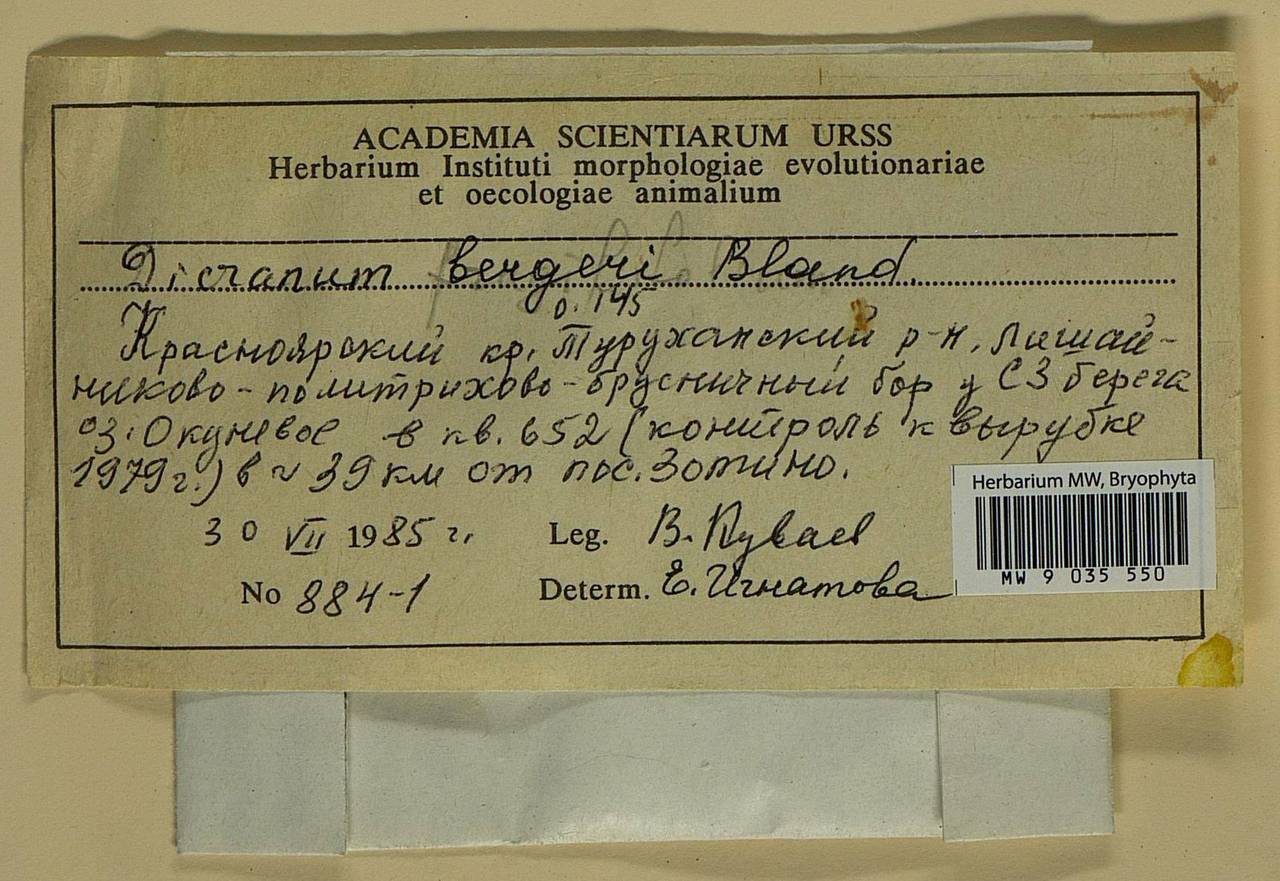 ACADEMIA SCIENTIARUM URSS
Herbarium Instituti morphologiae evolutionariae
et oecologiae animalium
Dicranum bergeri Bland.
о. 145
Красноярский кр. Туруханский р-н, лишай-
никово-политрихово-брусничный бор у СЗ берега
оз. Окуневое в кв. 652 (контроль к вырубке
1979 г.) в ~ 39 км от пос. Зотино.
30 VII 1985 г.
Leg. В.
No 884-1
Determ. Е. Игнатова
Herbarium MW, Bryophyta
MW 9 035 550